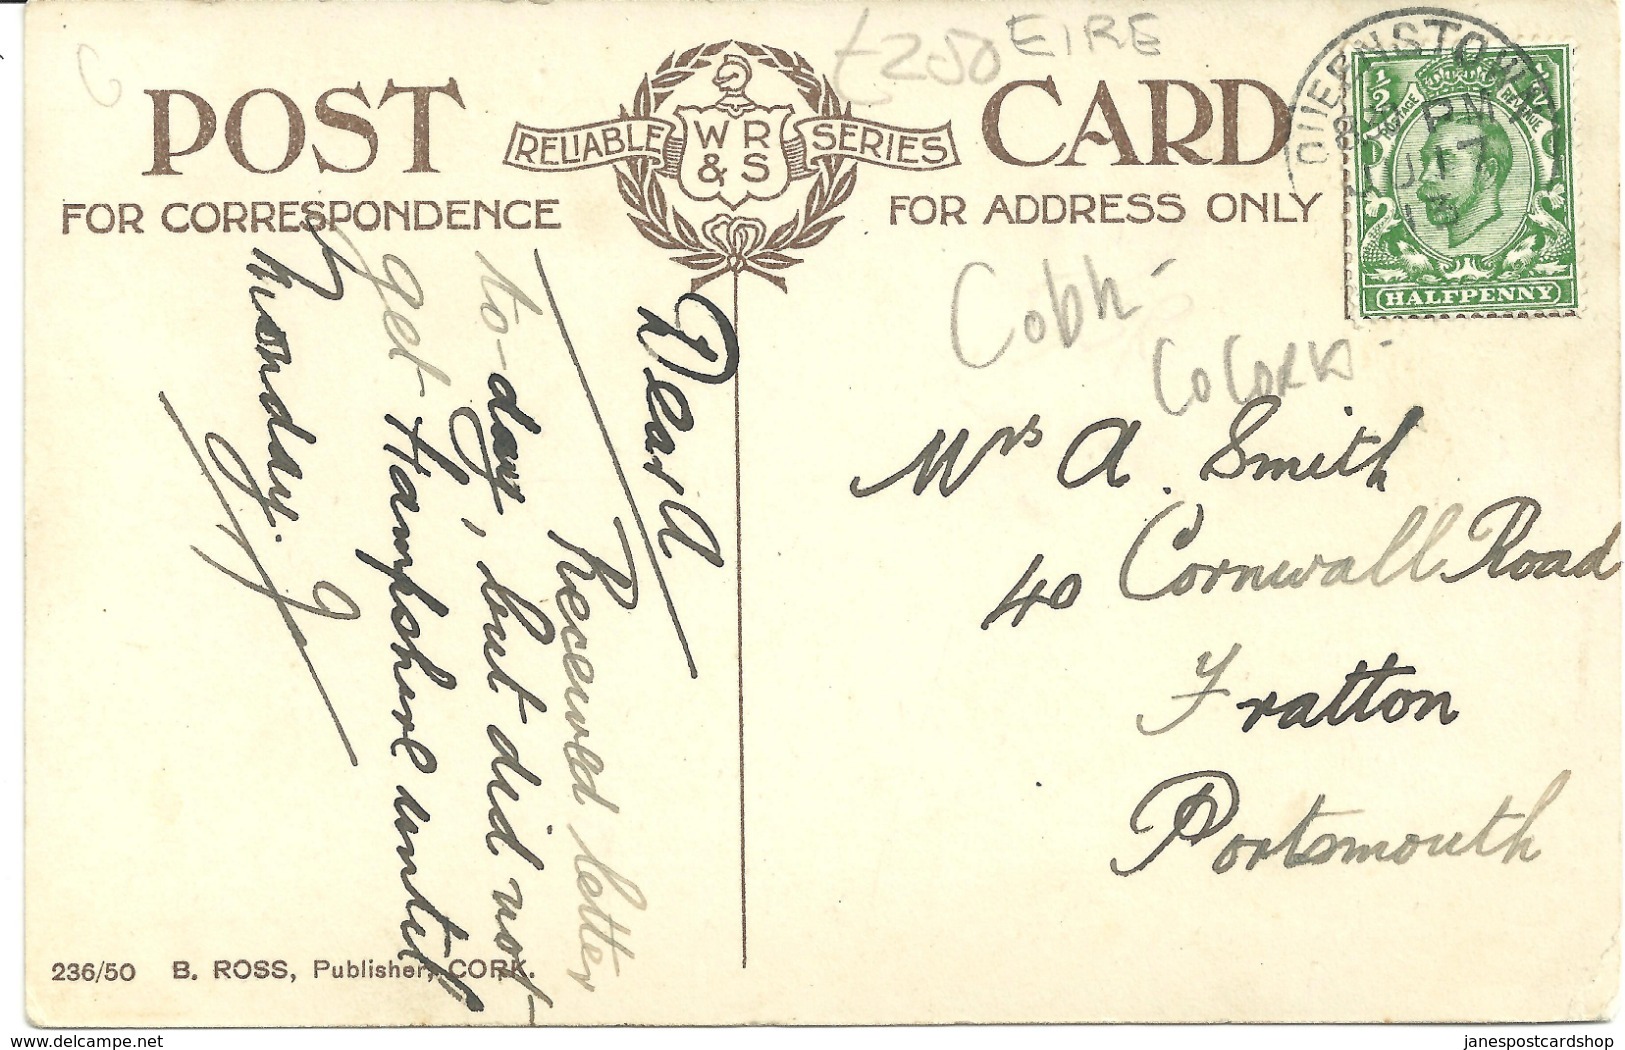 £2.50 EIRE
POST CARD
RELIABLE WR & S SERIES
FOR CORRESPONDENCE
FOR ADDRESS ONLY
QUEENSTOWN
PM
7
1/2
POSTAGE REVENUE
HALFPENNY
Cobh -
Co CORK -
Dear A
Received letter
to-day, but did not
get Hampshire until
Monday.
J
Mrs A. Smith
40 Cornwall Road
Fratton
Portsmouth
236/50 B. ROSS, Publisher, CORK.
delcampe.net
janespostcardshop